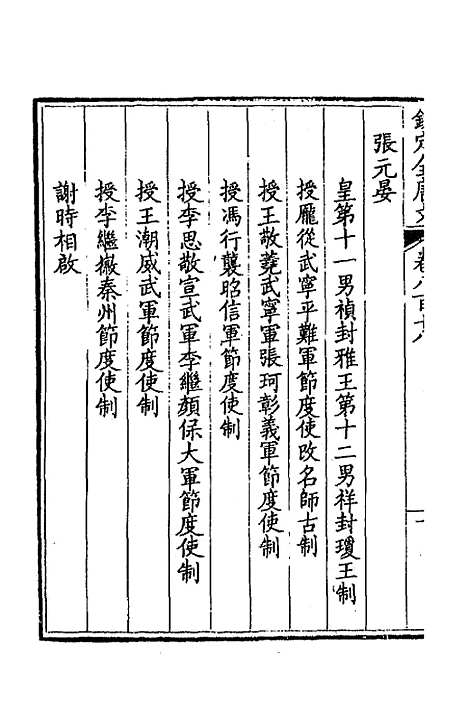 欽定全唐文 卷八百十八 一
張元晏
皇第十一男禎封雅王第十二男祥封瓊王制
授龎從武寧平難軍節度使改名師古制
授王敬蕘武寧軍張珂彰義軍節度使制
授馮行襲昭信軍節度使制
授李思敬宣武軍李繼顏保大軍節度使制
授王潮威武軍節度使制
授李繼㧱秦州節度使制
謝時相啟